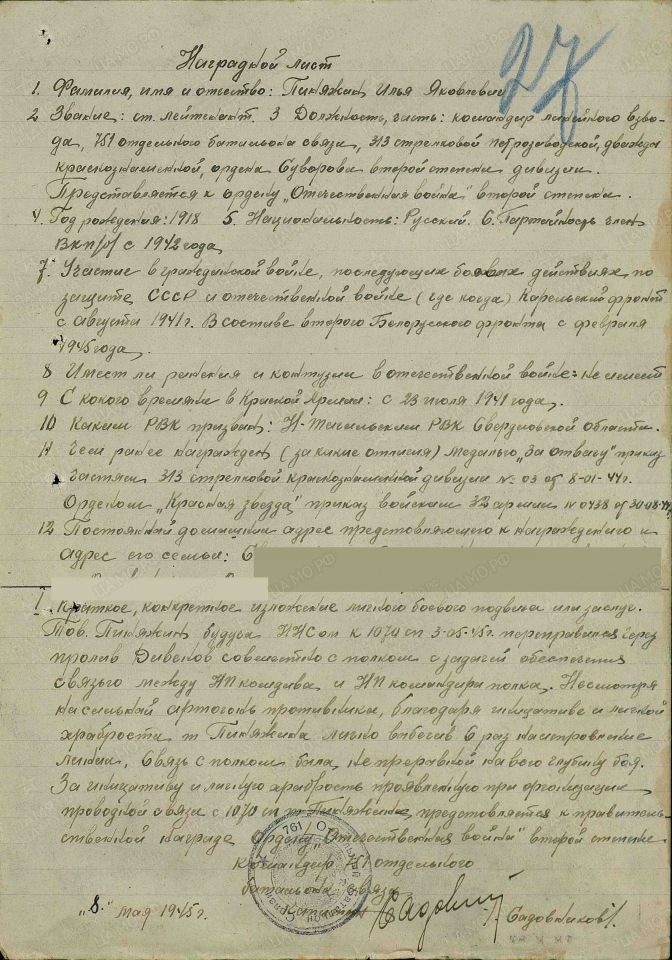 27
Наградной лист
1. Фамилия, имя и отчество: Пиняжин Илья Яковлевич
2 Звание: ст. лейтенант. 3 Должность, часть: командир линейного взво-
да, 761 отдельного батальона связи, 313 стрелковой петрозаводской, дважды
краснознаменной, ордена Суворова второй степени дивизии.
Представляется к ордену "Отечественная война" второй степени.
4. Год рождения: 1918 5. Национальность: Русский. 6. Партийность член
ВКП/б/ с 1942 года
7. Участие в гражданской войне, последующих боевых действиях по
защите СССР и отечественной войне (где когда) Карельский фронт
с августа 1941 г. В составе второго Белорусского фронта с февраля
1945 года.
8 Имеет ли ранения и контузии в отечественной войне: не имеет
9 С какого времени в Красной Армии: с 23 июля 1941 года.
10 Каким РВК призван: Н-Тагильским РВК Свердловской области.
11 Чем ранее награжден (за какие отличия) Медалью "За отвагу" приказ
частям 313 стрелковой краснознаменной дивизии № 03 от 8-01-44 г.
Орденом "Красная звезда" приказ войскам 32 армии № 0438 от 30-08-44
12 Постоянный домашний адрес представляемого к награждению и
адрес его семьи:
I. Краткое, конкретное изложение личного боевого подвига или заслуг.
Тов. Пиняжин будучи ННСом к 1070 сп 3-05-45 г. переправился через
пролив Дивенов совместно с полком с задачей обеспечения
связью между НП комдива и НП командира полка. Несмотря
на сильный артогонь противника, благодаря инициативе и личной
храбрости т Пиняжина лично выбегив 6 раз на исправление
линии, Связь с полком была непрерывной на всю глубину боя.
За инициативу и личную храбрость проявленную при организации
проводной связи с 1070 сп т. Пиняжин, представляется к правитель-
ственной награде Ордену "Отечественная война" второй степени
Командир 761 отдельного
батальона связи
Капитан /Садовников/.
"8" мая 1945 г.